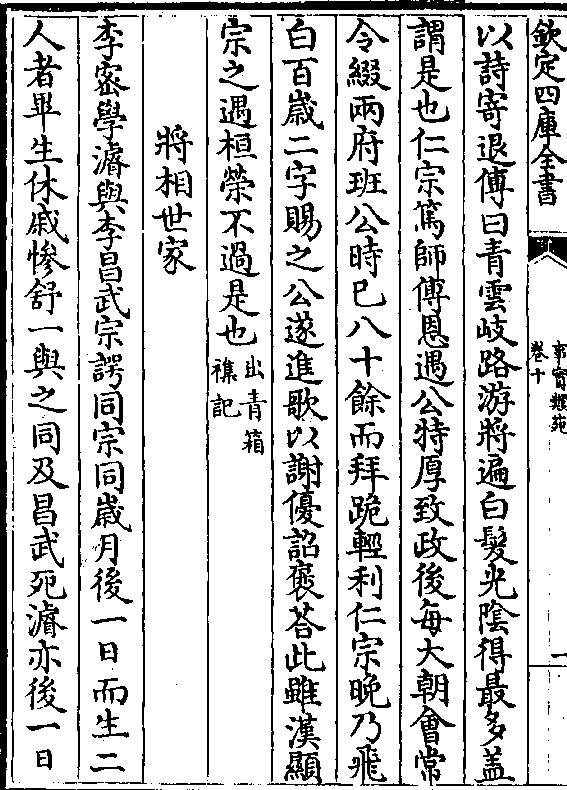 欽定四庫全書
事實類苑
卷十
一
以詩寄退傅曰青雲岐路游將遍白髮光陰得最多盖
謂是也仁宗篤師傅恩遇公特厚致政後每大朝會常
令綴兩府班公時已八十餘而拜跪輕利仁宗晚乃飛
白百歲二字賜之公遂進歌以謝優詔褒荅此雖漢顯
宗之遇桓榮不過是也出青箱
襍記
將相世家
李宻學濬與李昌武宗諤同宗同歲月後一日而生二
人者畢生休戚慘舒一與之同及昌武死濬亦後一日